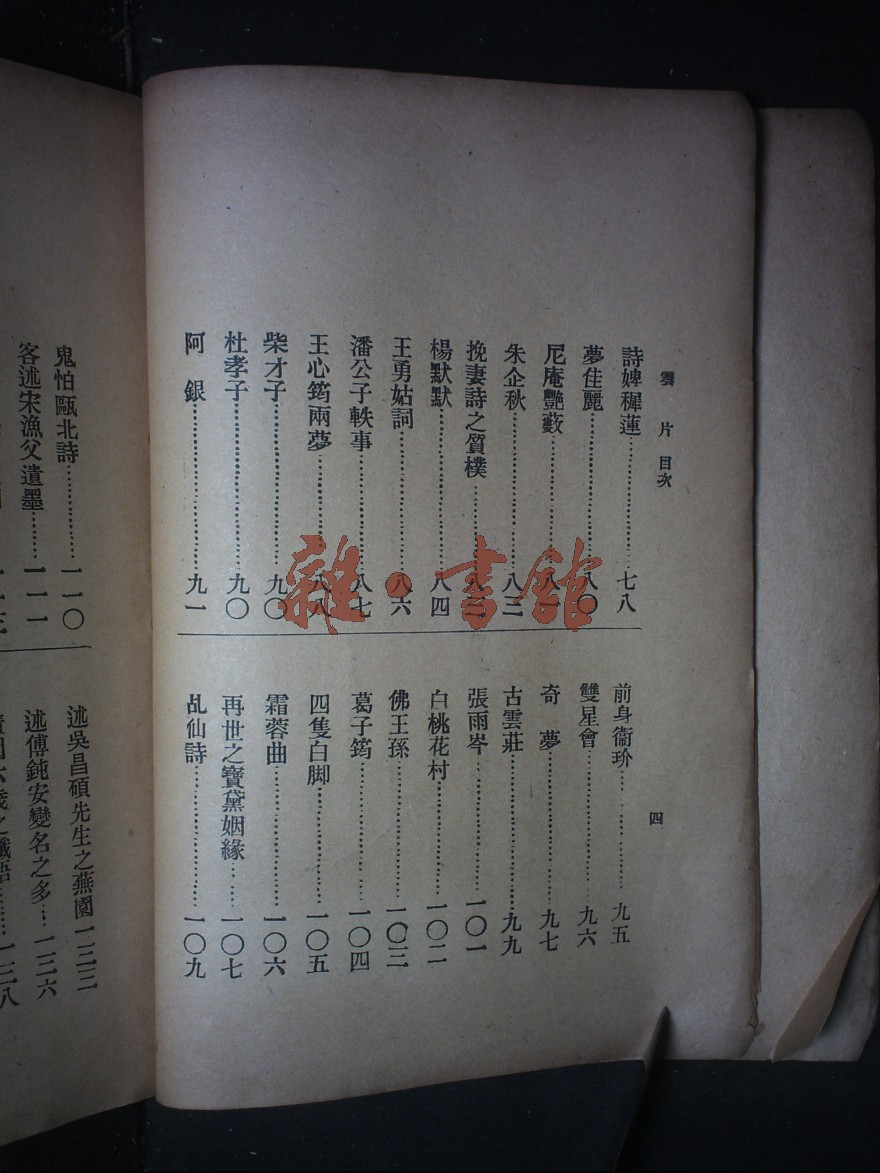 雲片 目次
四
詩婢穉蓮……七八
夢佳麗……八〇
尼庵艷藪……八一
朱企秋……八三
挽妻詩之質樸……八三
楊默默……八四
王勇姑詞……八六
潘公子軼事……八七
王心筠兩夢……八八
柴才子……九〇
杜孝子……九〇
阿銀……九一
前身衞玠……九五
雙星會……九六
奇夢……九七
古雲莊……九九
張雨岑……一〇一
白桃花村……一〇二
佛王孫……一〇三
葛子筠……一〇四
四隻白脚……一〇五
霜蓉曲……一〇六
再世之寶黛姻緣……一〇七
乩仙詩……一〇九
鬼怕甌北詩……一一〇
客述宋漁父遺墨……一一一
述吳昌碩先生之蕪園一三三
述傅鈍安變名之多…一三六
之讖語……一三八
雜·書館